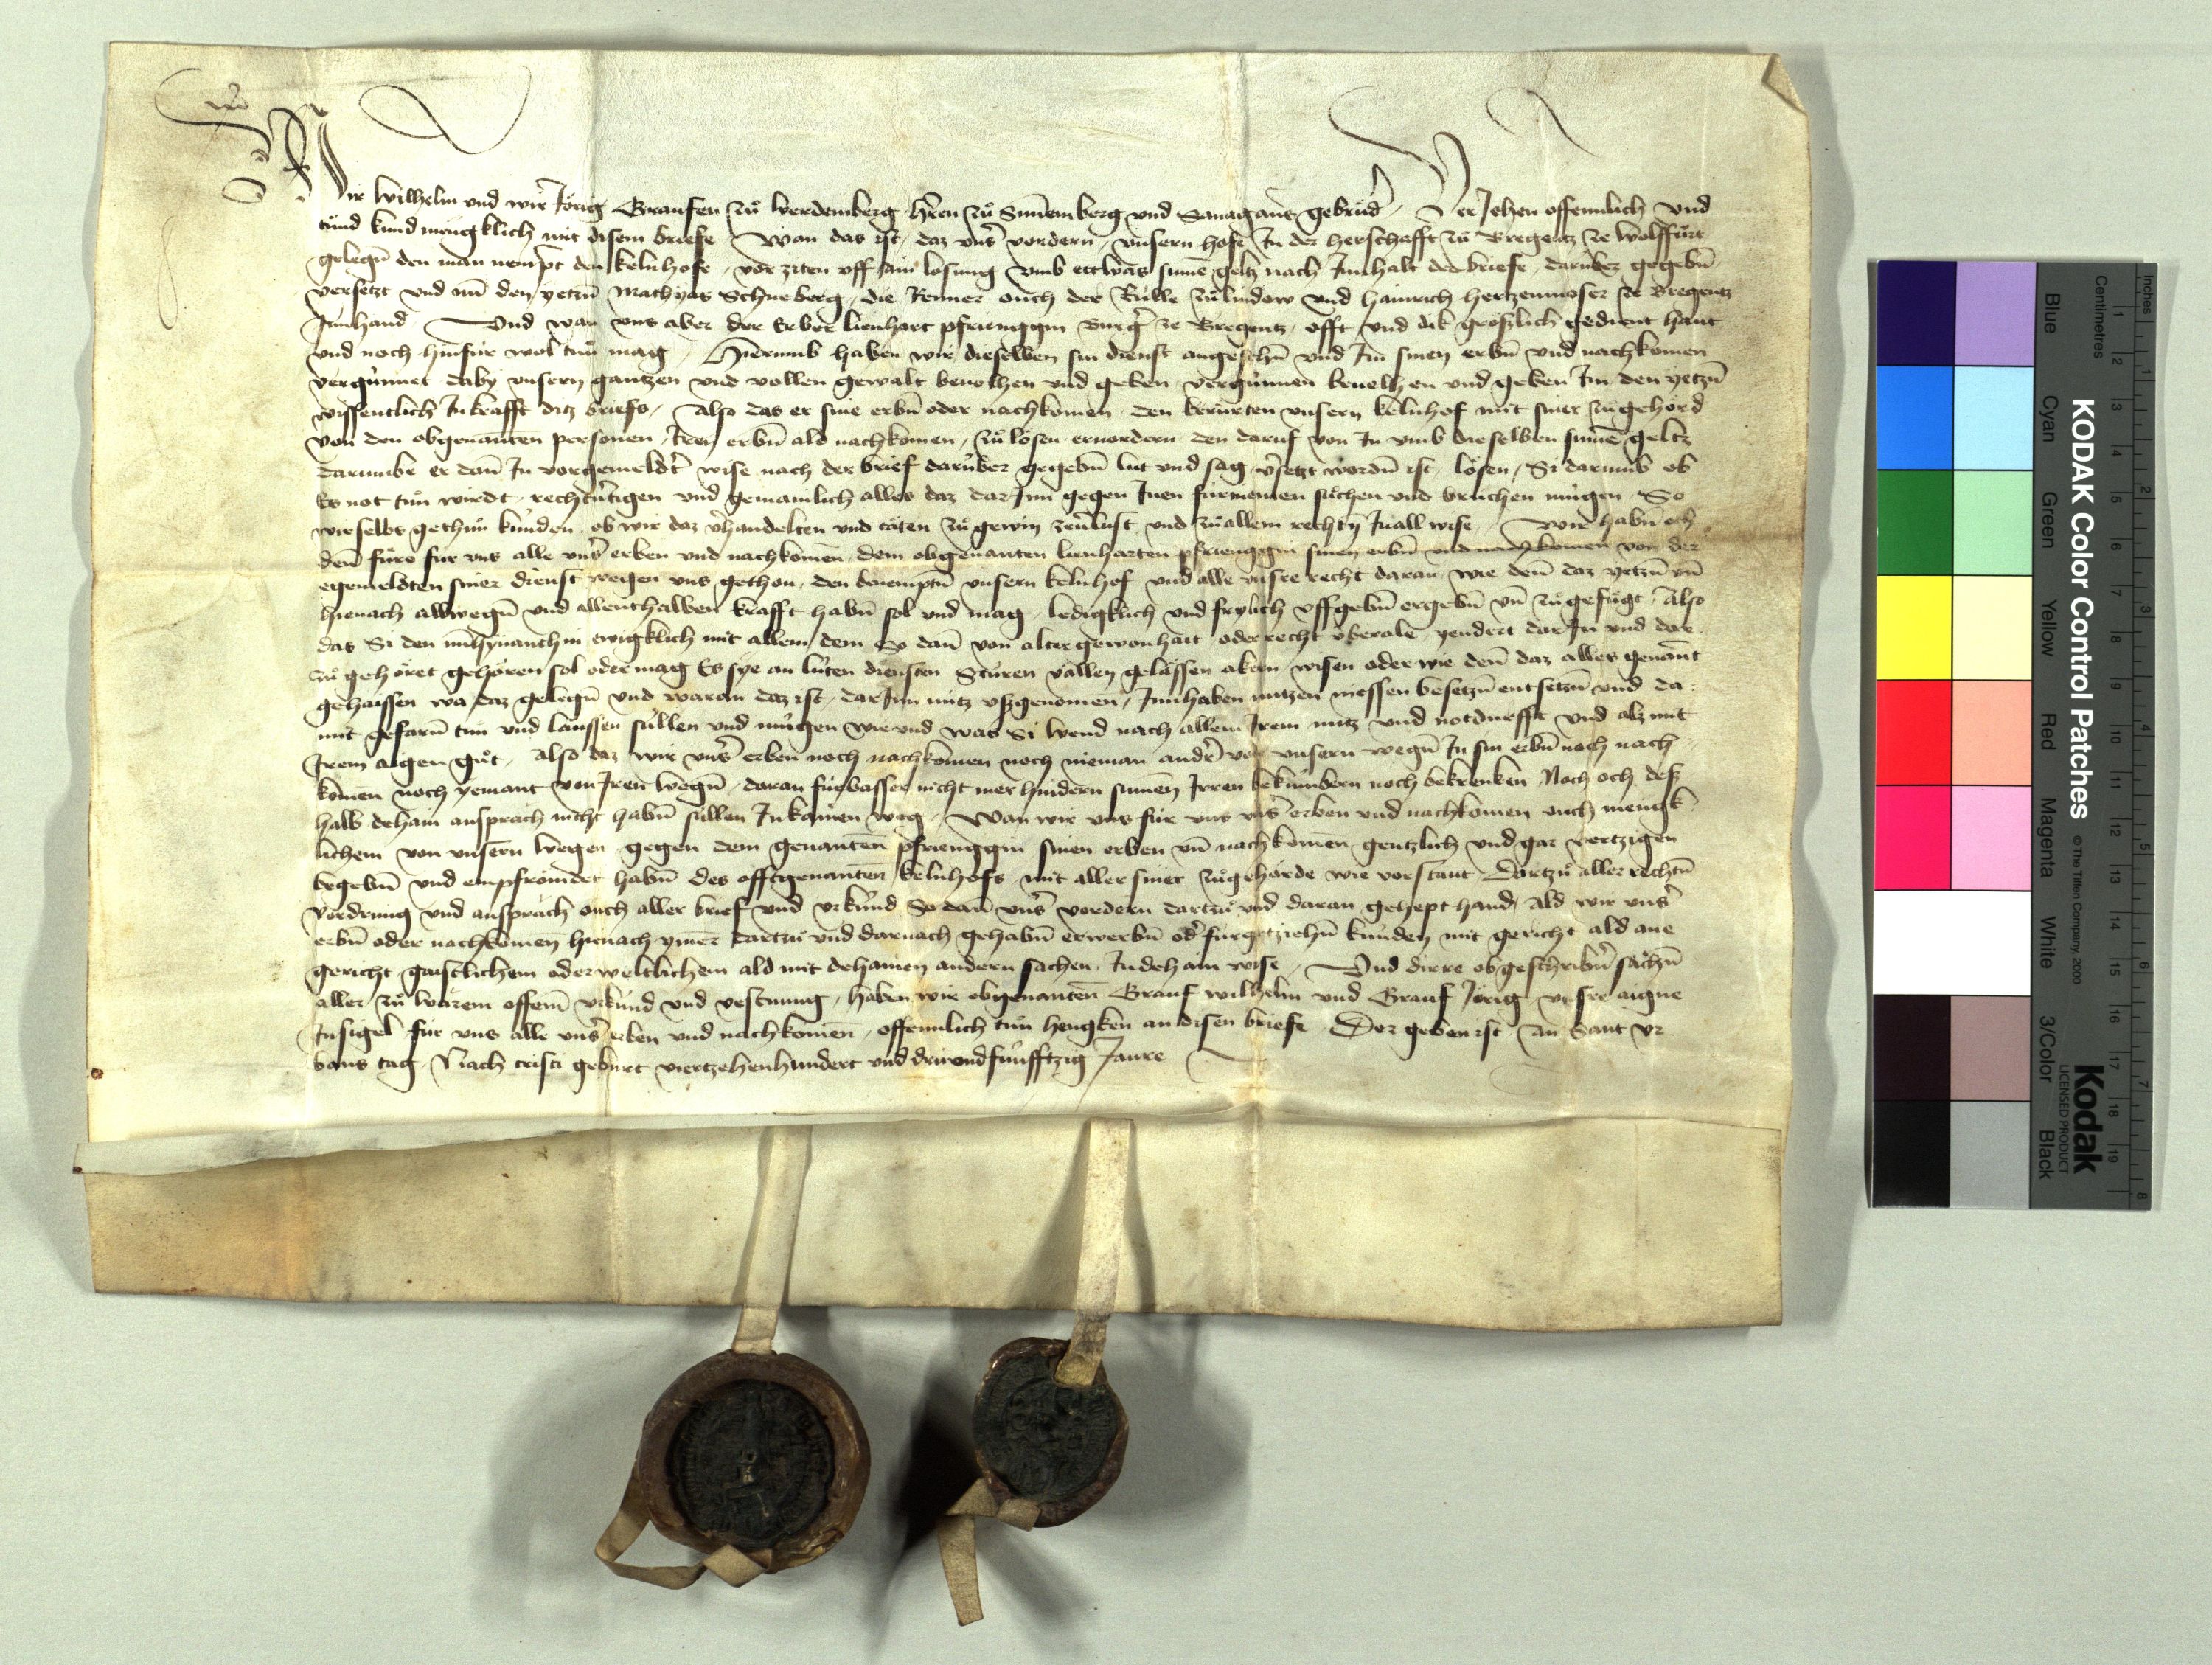 Wir wilhelm und wir Jörig Graufen zů werdemberg hr̄en zů Sunēmberg und Sanagans gebrüd̄ / Verjehen offennlich und
tůnd kund mengklich mit disem briefe / Wan das ist / daz unser̄ vordern / unsern hofe In der herschafft zů Bregentz ze wolffurt
gelegn̄ den man nempt den kelnhofe / vor ziten uff ain losung umb ettwas sume geltz nach Innhalt des briefs darüber gegebn̄
versetzt und nū den yetzn̄ Mathyas Schneberg / die Renner ouch der Rülle zů lindow und hainrich hertzenmoser ze Bregentz
Innhand Und wan uns aber der Erber lienhart pfrienggin Burger̄ ze Bregentz / offt und dik größlich gedient haut
und noch hinfür wol tůn mag / Hierumb haben wir dieselben sin dienst angesehn̄ und Im sinen erbn̄ und nachkomen
vergünnet daby unsern gantzen und vollen gewalt beuolhen und geben / vergünnen beuelhen und geben Im den yetzn̄
wissentlich In krafft ditz briefs / Also das er sine erbn̄ oder nachkomen / den berürten unsern kelnhof mit siner zůgehörd
von den obgenanten personen / Iren erbn̄ ald nachkomen / zů lösen eruordern den daruf von In umb dieselben sume geltz
darumbe er dan̄ In vorgemeldt̄ wise nach der brief darüber gegebn̄ lut und sag / v̄setzt wordn̄ ist / lösen / Si darumb ob
Es not tůn wirdt / rechtūtigen und gemainlich alles daz darInn gegen Inen fürnemen sůchen und bruchen mügen / So
wir selbs gethůn künden / ob wir daz v̄handelten und täten zů gewin zeuerlust / und zů allem rechtn̄ In all wise / Wir habn̄ och
den̄ füro für uns alle uns̄ erben und nachkomen / dem obgenanten lienharten pfrienggin sinen erbn̄ und nachkomen von der
egemeldten siner dienst wegen uns gethon / den benemptn̄ unsern kelnhof und alle unsre recht daran / wie den̄ daz yetzn̄ un̄
hienach allwegn̄ und allenthalben krafft habn̄ sol und mag / ledigklich und frylich uffgebn̄ ergebn̄ un̄ zůgefügt / Also
das Si den nunhynanthin ewigklich mit allem dem So dan̄ von alter gewonhait oder recht überale / yendert darIn und dar
zů gehöret gehören sol oder mag Es sye an lüten diensten Stüren vällen geläßen akern wisen oder wie den̄ daz alles genant
gehaissen wa daz gelegn̄ und waran daz ist / darInn nütz ußgenomen / Innhaben nutzen niessen besetzn̄ entsetzn̄ und da
mit gefarn̄ tůn und laussen süllen und mügen wie und was Si wend nach allem Irem nutz und notdurfft und alz mit
Irem aigen gůt / Also daz wir uns̄ erben noch nachkomen noch nieman andr̄ von unsern wegn̄ In sin erbn̄ noch nach
komen noch yemant von Iren wegn̄ / daran fürbasser nicht mer hindern sumen Irren bekümbern noch bekrenken Noch och deß
halb dehain ansprach nicht habn̄ süllen In kainen weg / Wan wir uns für uns uns̄ erben und nachkomen ouch mengk
lichem von unsern wegen / gegen dem genanten pfrienggin sinen erben un̄ nachkomen gentzlich und gar vertzigen
begebn̄ und empfrömdet habn̄ des offtgenanten kelnhofs mit aller siner zůgehörde wie vorstaut / Dartzů aller rechtn̄
vordrung und ansprach ouch aller brief und urkünd So dan̄ uns̄ vordern dartzů und daran gehept hand / ald wir uns̄
erbn̄ oder nachkomen hienach ymer dartzů und darnach gehabn̄ erwerbn̄ od̄ fürgetziehn̄ künden mit gericht ald ane
gericht gaistlichem oder weltlichem ald mit dehainen andern sachen / In dehain wise / Und dirre obgeschribn̄ sachn̄
aller zů warem offem urkünd und vestnung / haben wir obgenanten Grauf wilhelm und Grauf Jörig unsre aigne
Insigel für uns alle uns̄ erben und nachkomen / offennlich tůn hengken an disen briefe Der geben ist An Sant Ur
bans tag Nach cristi geburt viertzehenhundert und drü und fünfftzig Jaure
KODAK Color Control Patches © The Tiffen Company, 2000
Kodak
LICENSED PRODUCT
Blue Cyan Green Yellow Red Magenta White 3/Color Black
Inches 1 2 3 4 5 6 7 8
Centimetres 1 2 3 4 5 6 7 8 9 10 11 12 13 14 15 16 17 18 19